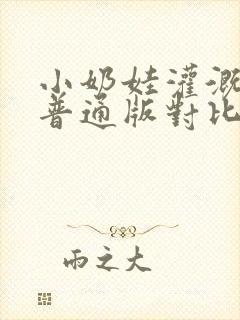 小奶娃灌溉
普通版對比
雨之大